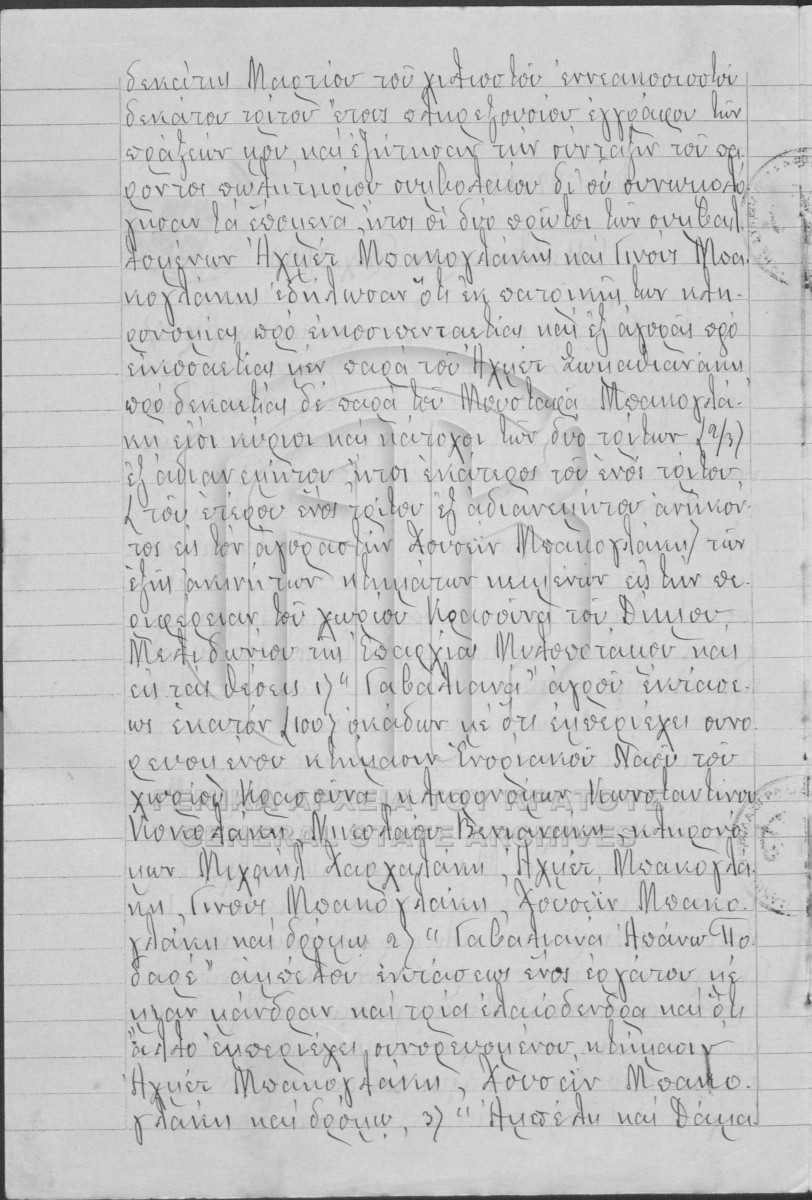 δεκάτης Μαρτίου τοῦ χιλιοστοῦ ἐννεακοσιοστοῦ
δεκάτου τρίτου ἔτους πληρεξουσίου ἐγγράφου τῶν
πράξεών μου, καί ἐζήτησαν τήν σύνταξιν τοῦ πα-
ρόντος πωλητηρίου συμβολαίου δι' οὗ συνωμολό-
γησαν τά ἑπόμενα, ἤτοι οἱ δύο πρῶτοι τῶν συμβαλ-
λομένων Ἀχμέτ Μπακογλάκης καί Γινούς Μπα-
κογλάκης ἐδήλωσαν ὅτι ἐκ πατρικῆς των κλη-
ρονομίας πρό εἰκοσιπενταετίας καί ἐξ ἀγορᾶς πρό
εἰκοσαετίας μέν παρά τοῦ Ἀχμέτ
πρό δεκαετίας δέ παρά τοῦ Μουσταφᾶ Μπακογλά-
κη εἰσί κύριοι καί κάτοχοι τῶν δύο τρίτων (2/3)
ἐξ ἀδιανεμήτου, ἤτοι ἑκάτερος τοῦ ἑνός τρίτου
(τοῦ ἑτέρου ἑνός τρίτου ἐξ ἀδιανεμήτου ἀνήκον-
τος εἰς τόν ἀγοραστήν Χουσεΐν Μπακογλάκη) τῶν
ἑξῆς ἀκινήτων κτημάτων κειμένων εἰς τήν πε-
ριφέρειαν τοῦ χωρίου Κρασούνα τοῦ Δήμου
Μελιδωνίου τῆς Ἐπαρχίας Μυλοποτάμου καί
εἰς τάς θέσεις 1) "Γαβαλιανά" ἀγροῦ ἐκτάσε-
ως ἑκατόν (100) ὀκάδων μέ ὅτι ἐμπεριέχει συνο-
ρευομένου κτήμασιν Ἐνοριακοῦ Ναοῦ τοῦ
χωρίου Κρασούνα, κληρονόμων Κωνσταντίνου
Κοκολάκη, Νικολάου Βενιανάκη, κληρονό-
μων Μιχαήλ Χαρχαλάκη, Ἀχμέτ Μπακογλά-
κη, Γινούς Μπακογλάκη, Χουσεΐν Μπακο-
γλάκη καί δρόμῳ 2) "Γαβαλιανά Ἀπάνω Πο-
δαρέ" ἀμπέλου ἐκτάσεως ἑνός ἐργάτου μέ
μίαν μάνδραν καί τρία ἐλαιόδενδρα καί ὅτι
ἄλλο ἐμπεριέχει συνορευομένου κτήμασιν
Ἀχμέτ Μπακογλάκη, Χουσεΐν Μπακο-
γλάκη καί δρόμῳ, 3) "Ἀμπέλι καί Δάμα
ΓΕΝΙΚΑ ΑΡΧΕΙΑ ΤΟΥ ΚΡΑΤΟΥΣ
GENERAL STATE ARCHIVES